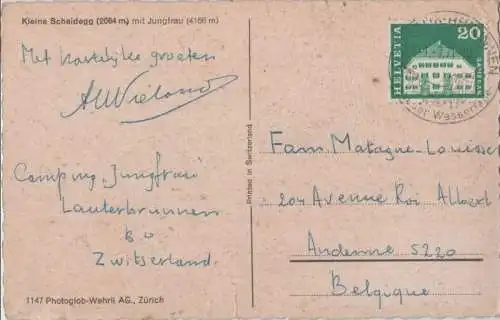 Kleine Scheidegg (2064 m) mit Jungfrau (4166 m)
Met hartelijke groeten
AWieland
Camping "Jungfrau"
Lauterbrunnen
Bo
Zwitserland.
1147 Photoglob-Wehrli AG., Zürich
Printed in Switzerland
HELVETIA
20
SAMEDAN
Wasserfälle
Fam. Matagne-Louisse
204 Avenue Roi Albert
Andenne 5220
Belgique